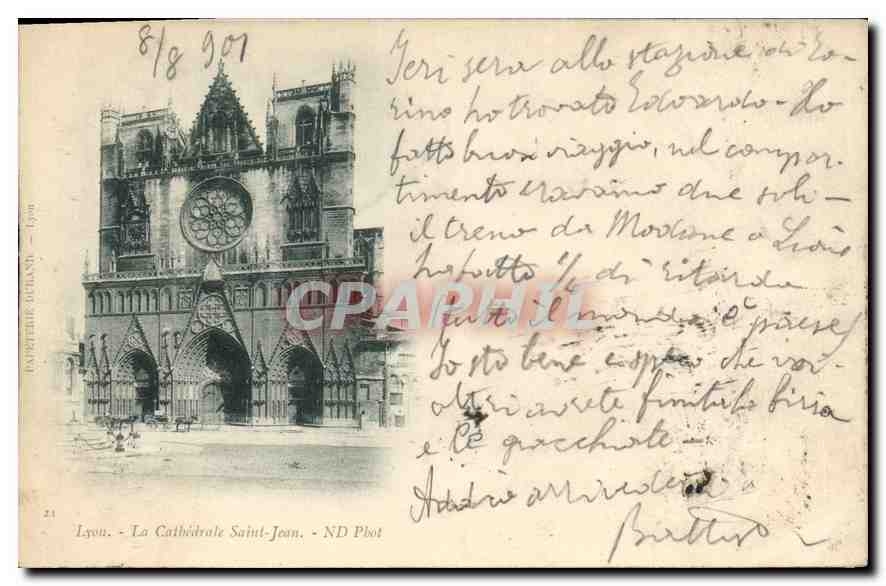 8/8 901
Ieri sera alla stazione di To-
rino ho trovato Edoardo - Ho
fatto buon viaggio, nel compar-
timento eravamo due soli -
il treno da Modane a Lione
ha fatto 1/2 di ritardo
tutto il mondo è paese!
Io sto bene e spero che voi-
altri avrete finita la birra
e le
Addio arrivederci
PAPETERIE DURAND - Lyon
CPAPHIL
21
Lyon. - La Cathédrale Saint-Jean. - ND Phot